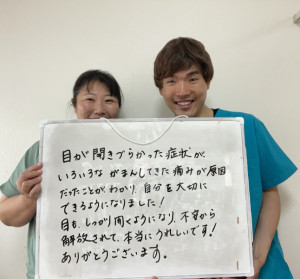 目が開きづらかった症状が、
いろいろな がまんしてきた 痛みが原因
だったことが、わかり、自分を大切に
できるようになりました！
目も、しっかり開くようになり、不安から
解放されて、本当にうれしいです！
ありがとうございます。